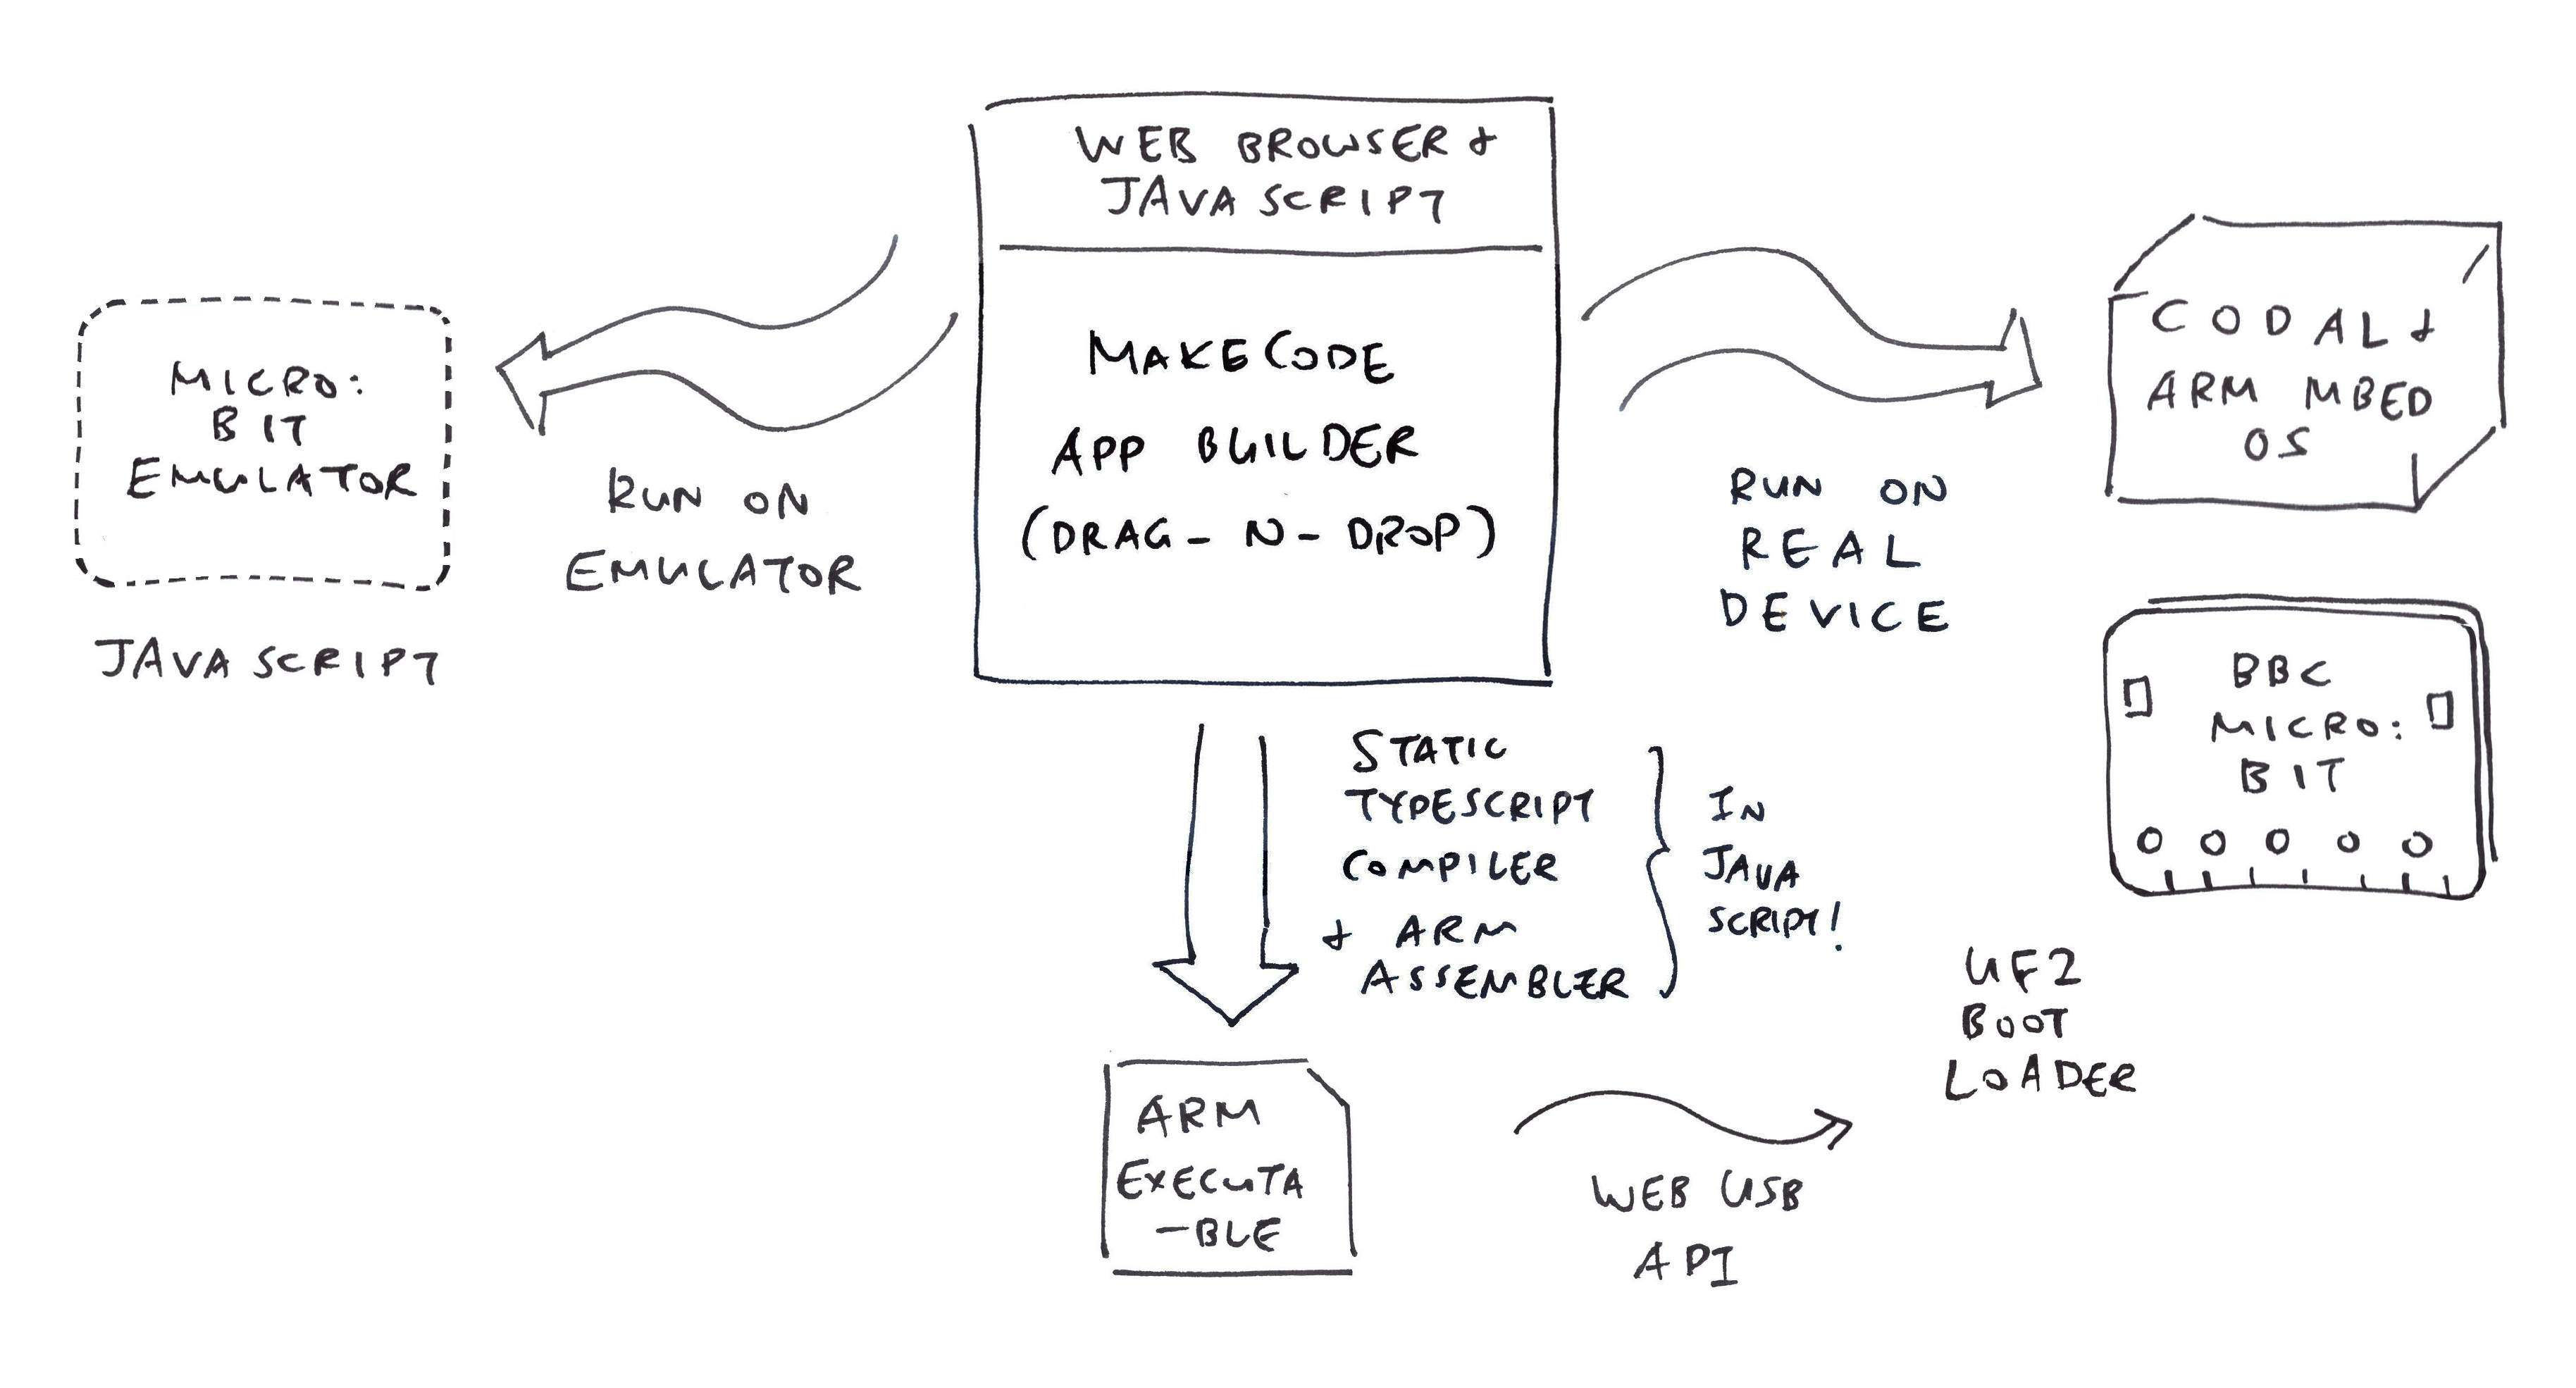 WEB BROWSER +
JAVASCRIPT
MAKECODE
APP BUILDER
(DRAG-N-DROP)
MICRO:
BIT
EMULATOR
JAVASCRIPT
RUN ON
EMULATOR
RUN ON
REAL
DEVICE
CODAL +
ARM MBED
OS
BBC
MICRO:
BIT
STATIC
TYPESCRIPT
COMPILER
+ ARM
ASSEMBLER
IN
JAVA
SCRIPT!
UF2
BOOT
LOADER
ARM
EXECUTA
-BLE
WEB USB
API